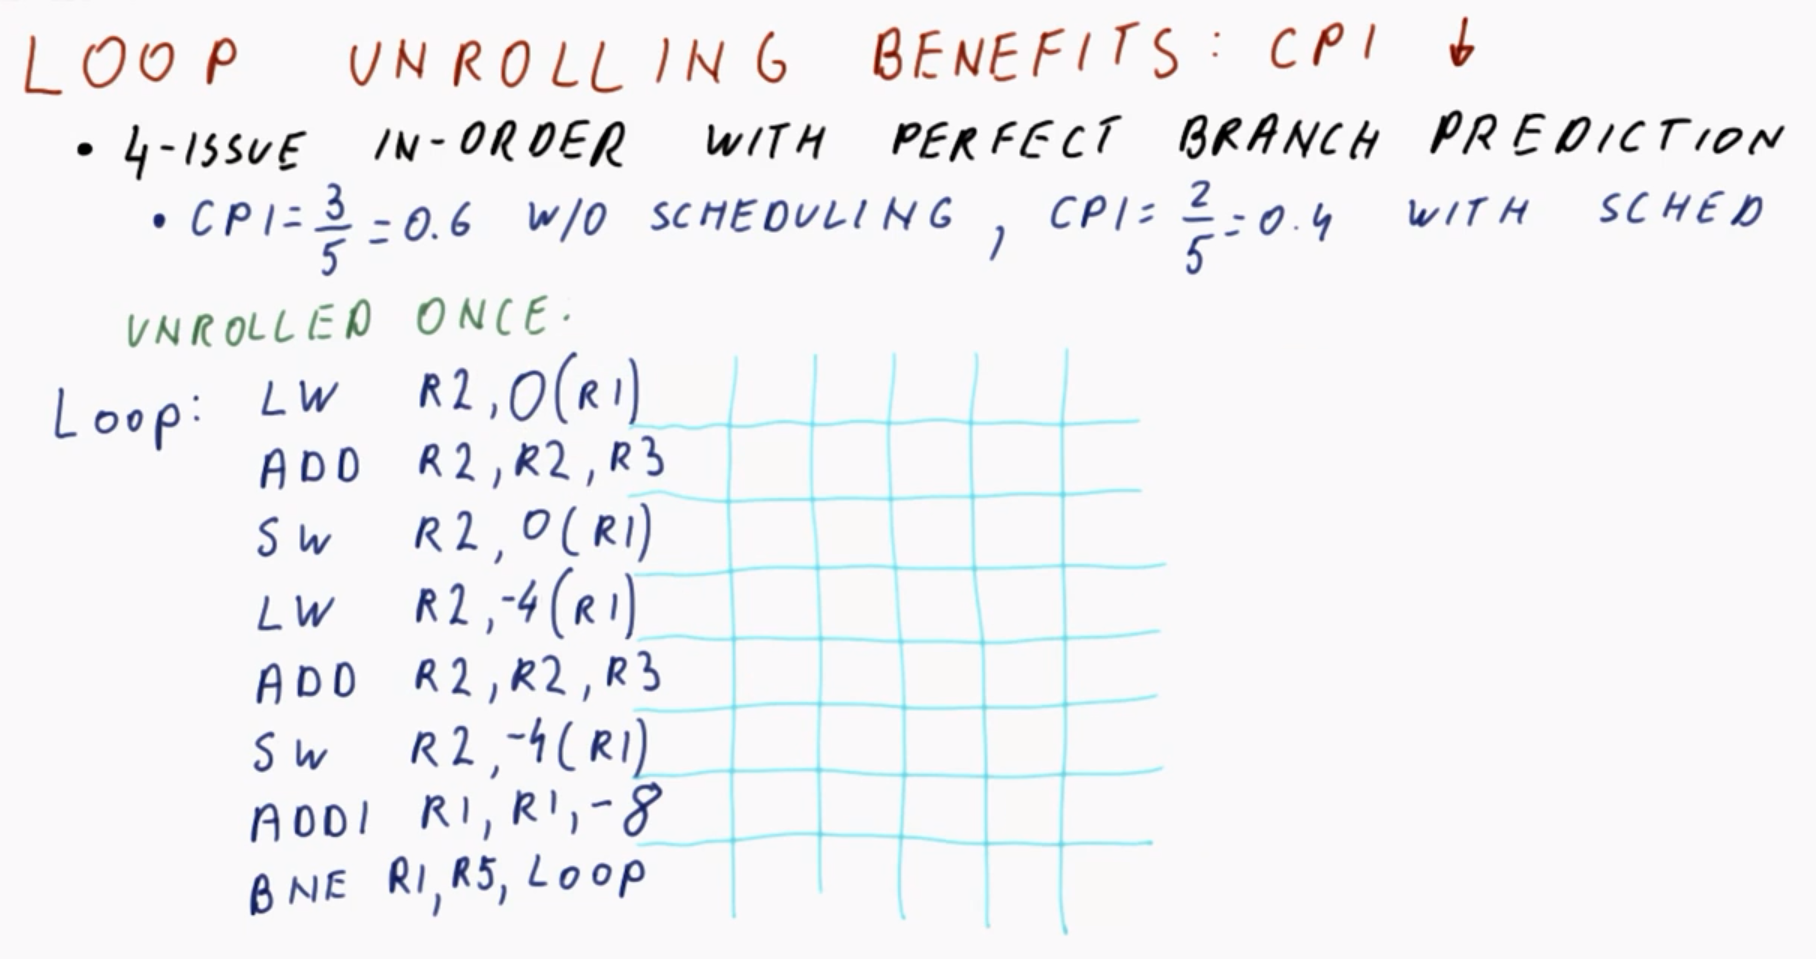 LOOP UNROLLING BENEFITS: CPI ↓
• 4-ISSUE IN-ORDER WITH PERFECT BRANCH PREDICTION
• CPI = 3/5 = 0.6 W/O SCHEDULING, CPI = 2/5 = 0.4 WITH SCHED
UNROLLED ONCE.
Loop: LW R2, 0(R1)
ADD R2, R2, R3
SW R2, 0(R1)
LW R2, -4(R1)
ADD R2, R2, R3
SW R2, -4(R1)
ADDI R1, R1, -8
BNE R1, R5, LOOP